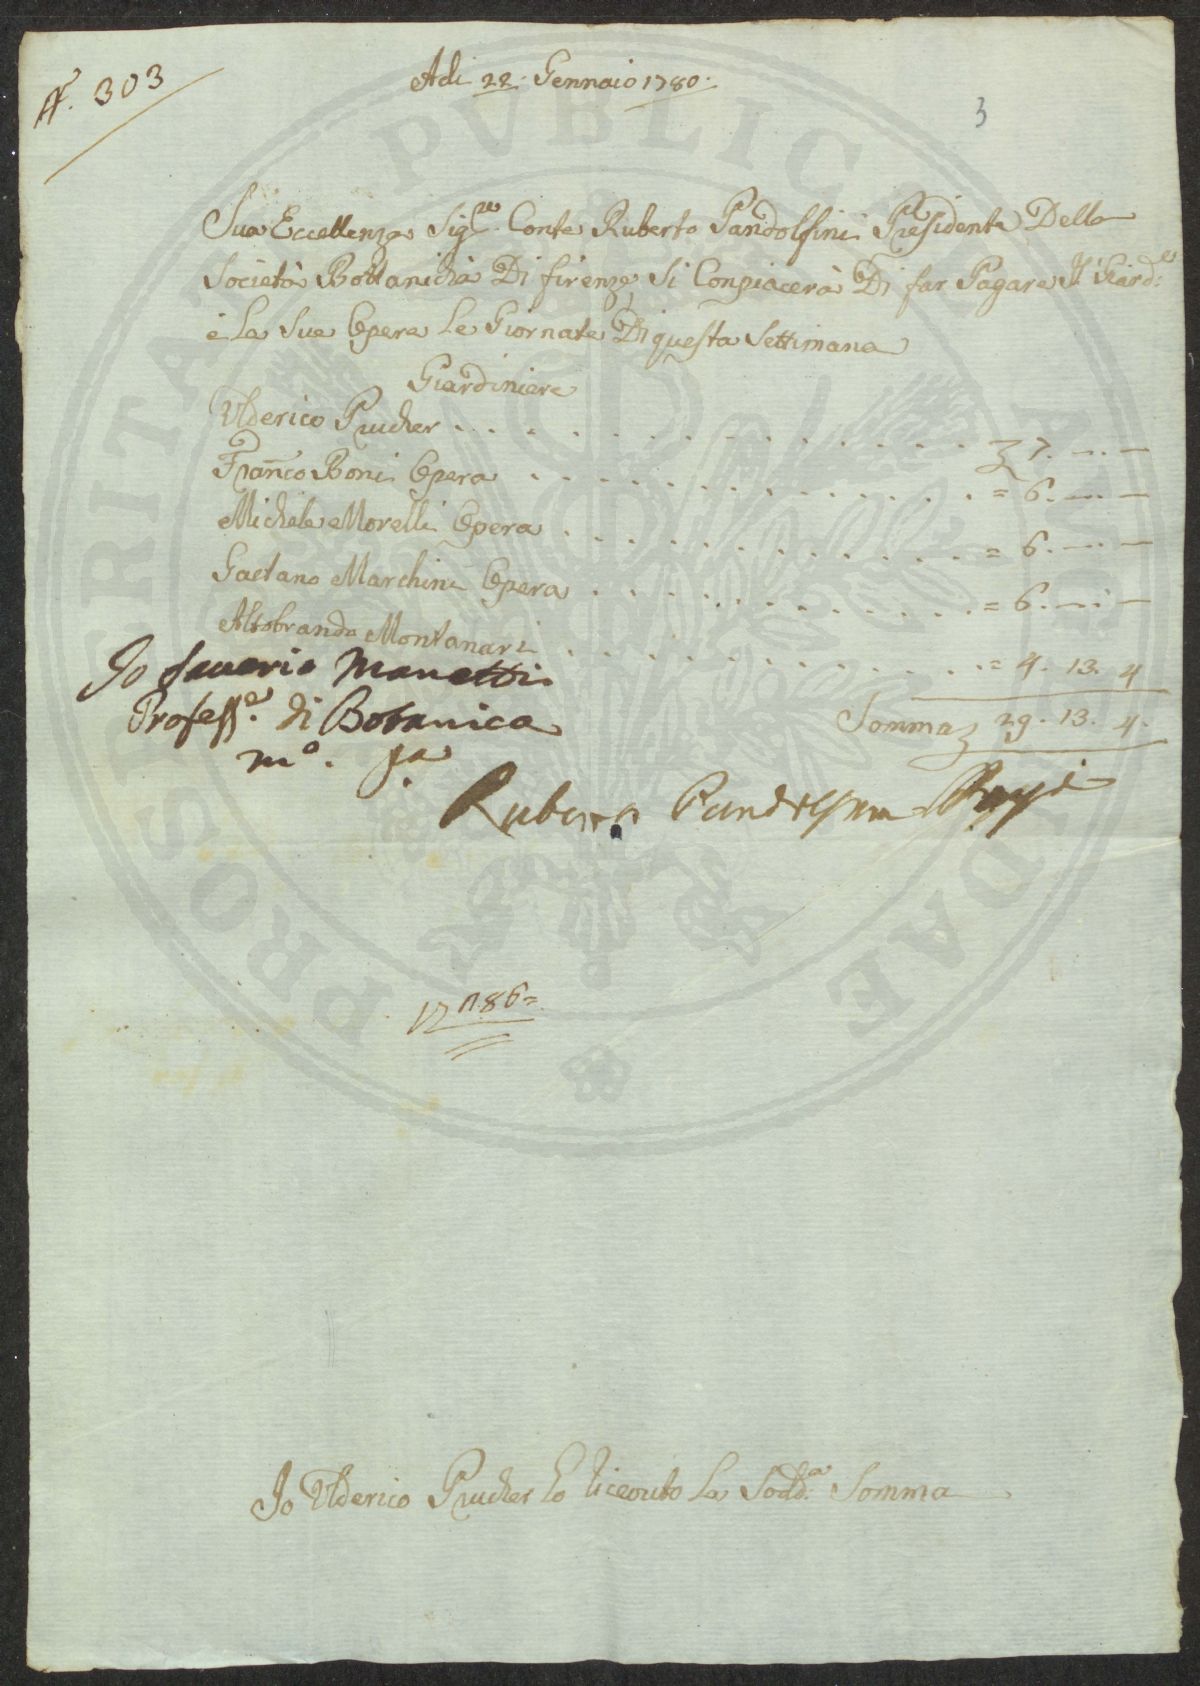 N.° 303
Adi 22. Gennaio 1780.
3
Sua Eccellenza Sig.re Conte Ruberto Pandolfini Presidente Della
Società Bottanicha Di firenze, Si Conpiacerà Di far Pagare Il Giard.re
e La Sue Opera Le Giornate Di questa Settimana
Giardiniere
Ulderico Prucher . . . . . . . . . . . . . . . . 7. —. —
Franco Boni Opera . . . . . . . . . . . . = 6. —. —
Michele Morelli Opera . . . . . . . . . . . = 6. —. —
Gaetano Marchini Opera . . . . . . . . . . . = 6. —. —
Altobrando Montanari . . . . . . . . . . . = 4. 13. 4
Somma 29. 13. 4.
Io saverio Manetti
Profess.e di Botanica
m.o p.a
Ruberto Pandolfini
Io Ulderico Prucher ho riceouto La Sodd.a Somma
PROSPERITATI PVBLICAE